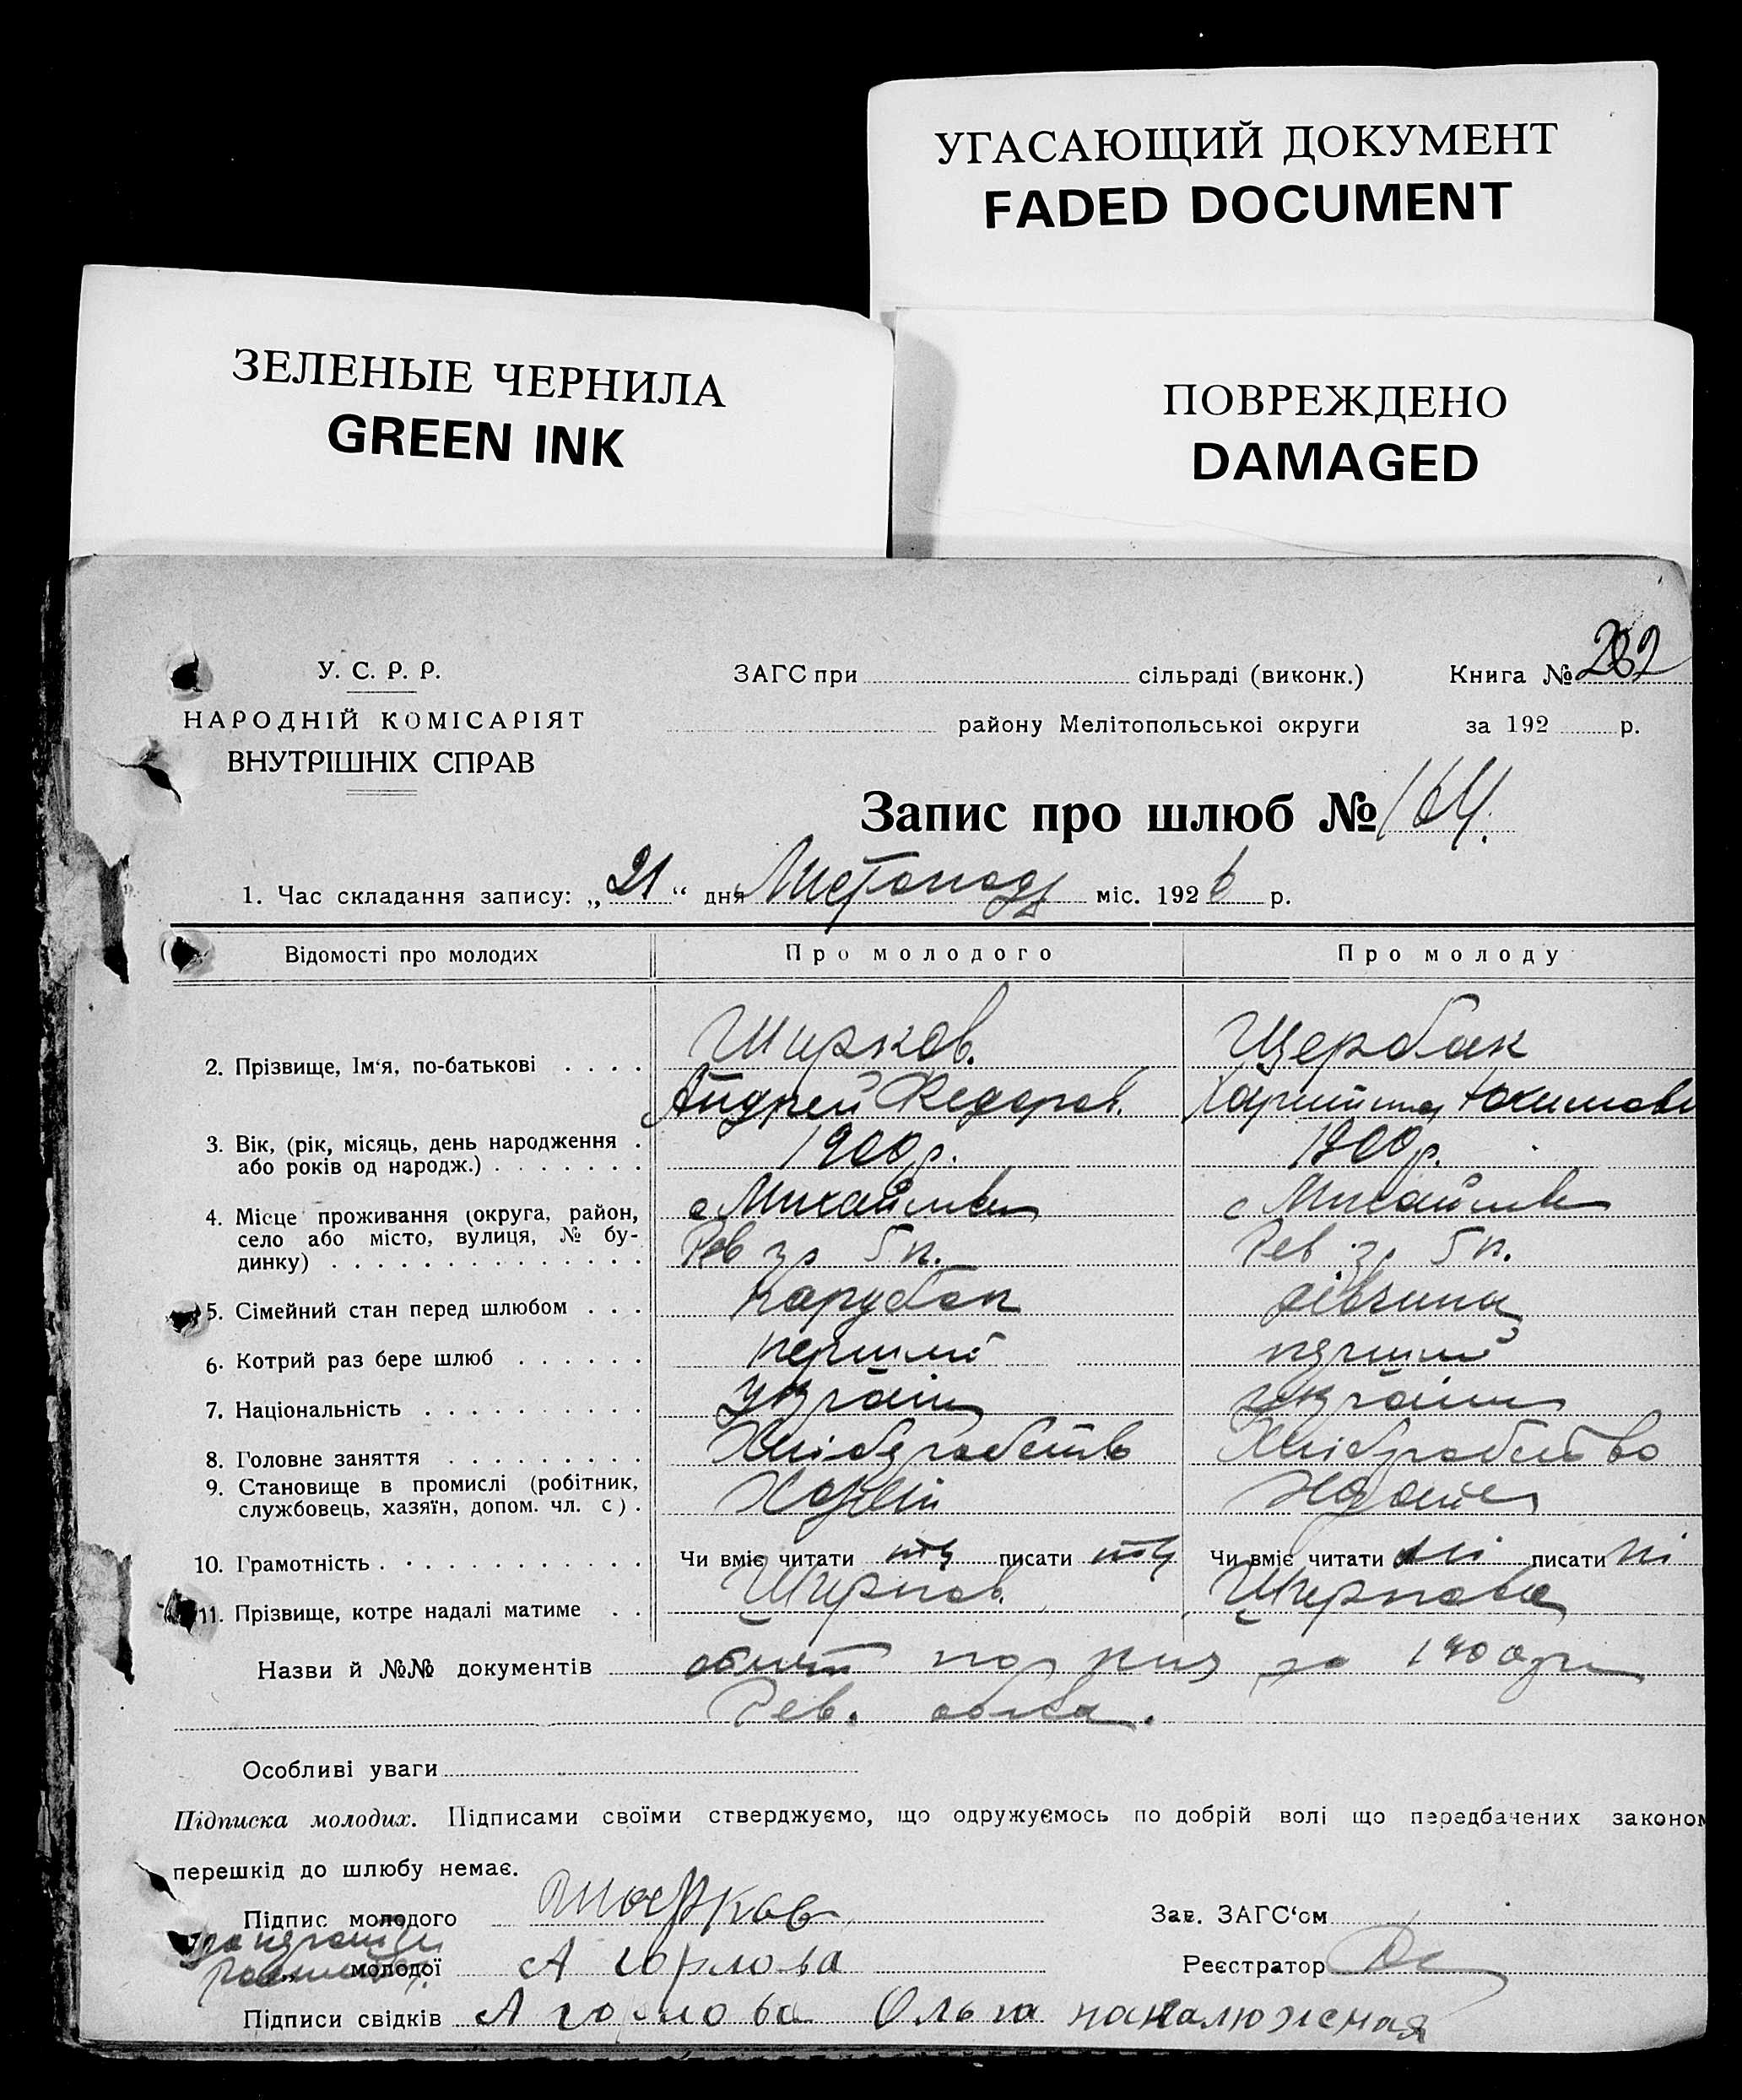 УГАСАЮЩИЙ ДОКУМЕНТ
FADED DOCUMENT
ЗЕЛЕНЫЕ ЧЕРНИЛА
GREEN INK
ПОВРЕЖДЕНО
DAMAGED
У. С. Р. Р.
НАРОДНІЙ КОМІСАРІЯТ
ВНУТРІШНІХ СПРАВ
ЗАГС при сільраді (виконк.) Книга № 282
району Мелітопольської округи за 192 р.
Запис про шлюб № 164.
1. Час складання запису: „21“ дня Листопада міс. 1926 р.
Відомості про молодих Про молодого Про молоду
2. Прізвище, Ім'я, по-батькові Ширков. Щербак
Андрей Федоров.
3. Вік, (рік, місяць, день народження 1900 р. 1900 р.
або років од народж.)
4. Місце проживання (округа, район, с Михайлівка с Михайлівка
село або місто, вулиця, № бу-
динку) Рев 5 п. Рев 5 п.
5. Сімейний стан перед шлюбом парубок дівчина
6. Котрий раз бере шлюб перший перший
7. Національність україн україн
8. Головне заняття Хліборобство Хліборобство
9. Становище в промислі (робітник,
службовець, хазяїн, допом. чл. с). Хазяїн
10. Грамотність Чи вміє читати писати Чи вміє читати ні писати ні
11. Прізвище, котре надалі матиме Ширков. Ширкова
Назви й №№ документів 1900
Рев.
Особливі уваги
Підписка молодих. Підписами своїми стверджуємо, що одружуємось по добрій волі що передбачених законом
перешкід до шлюбу немає.
Підпис молодого Ширков Зав. ЗАГС'ом
молодої А Горлова Реєстратор
Підписи свідків А Горлова Ольга